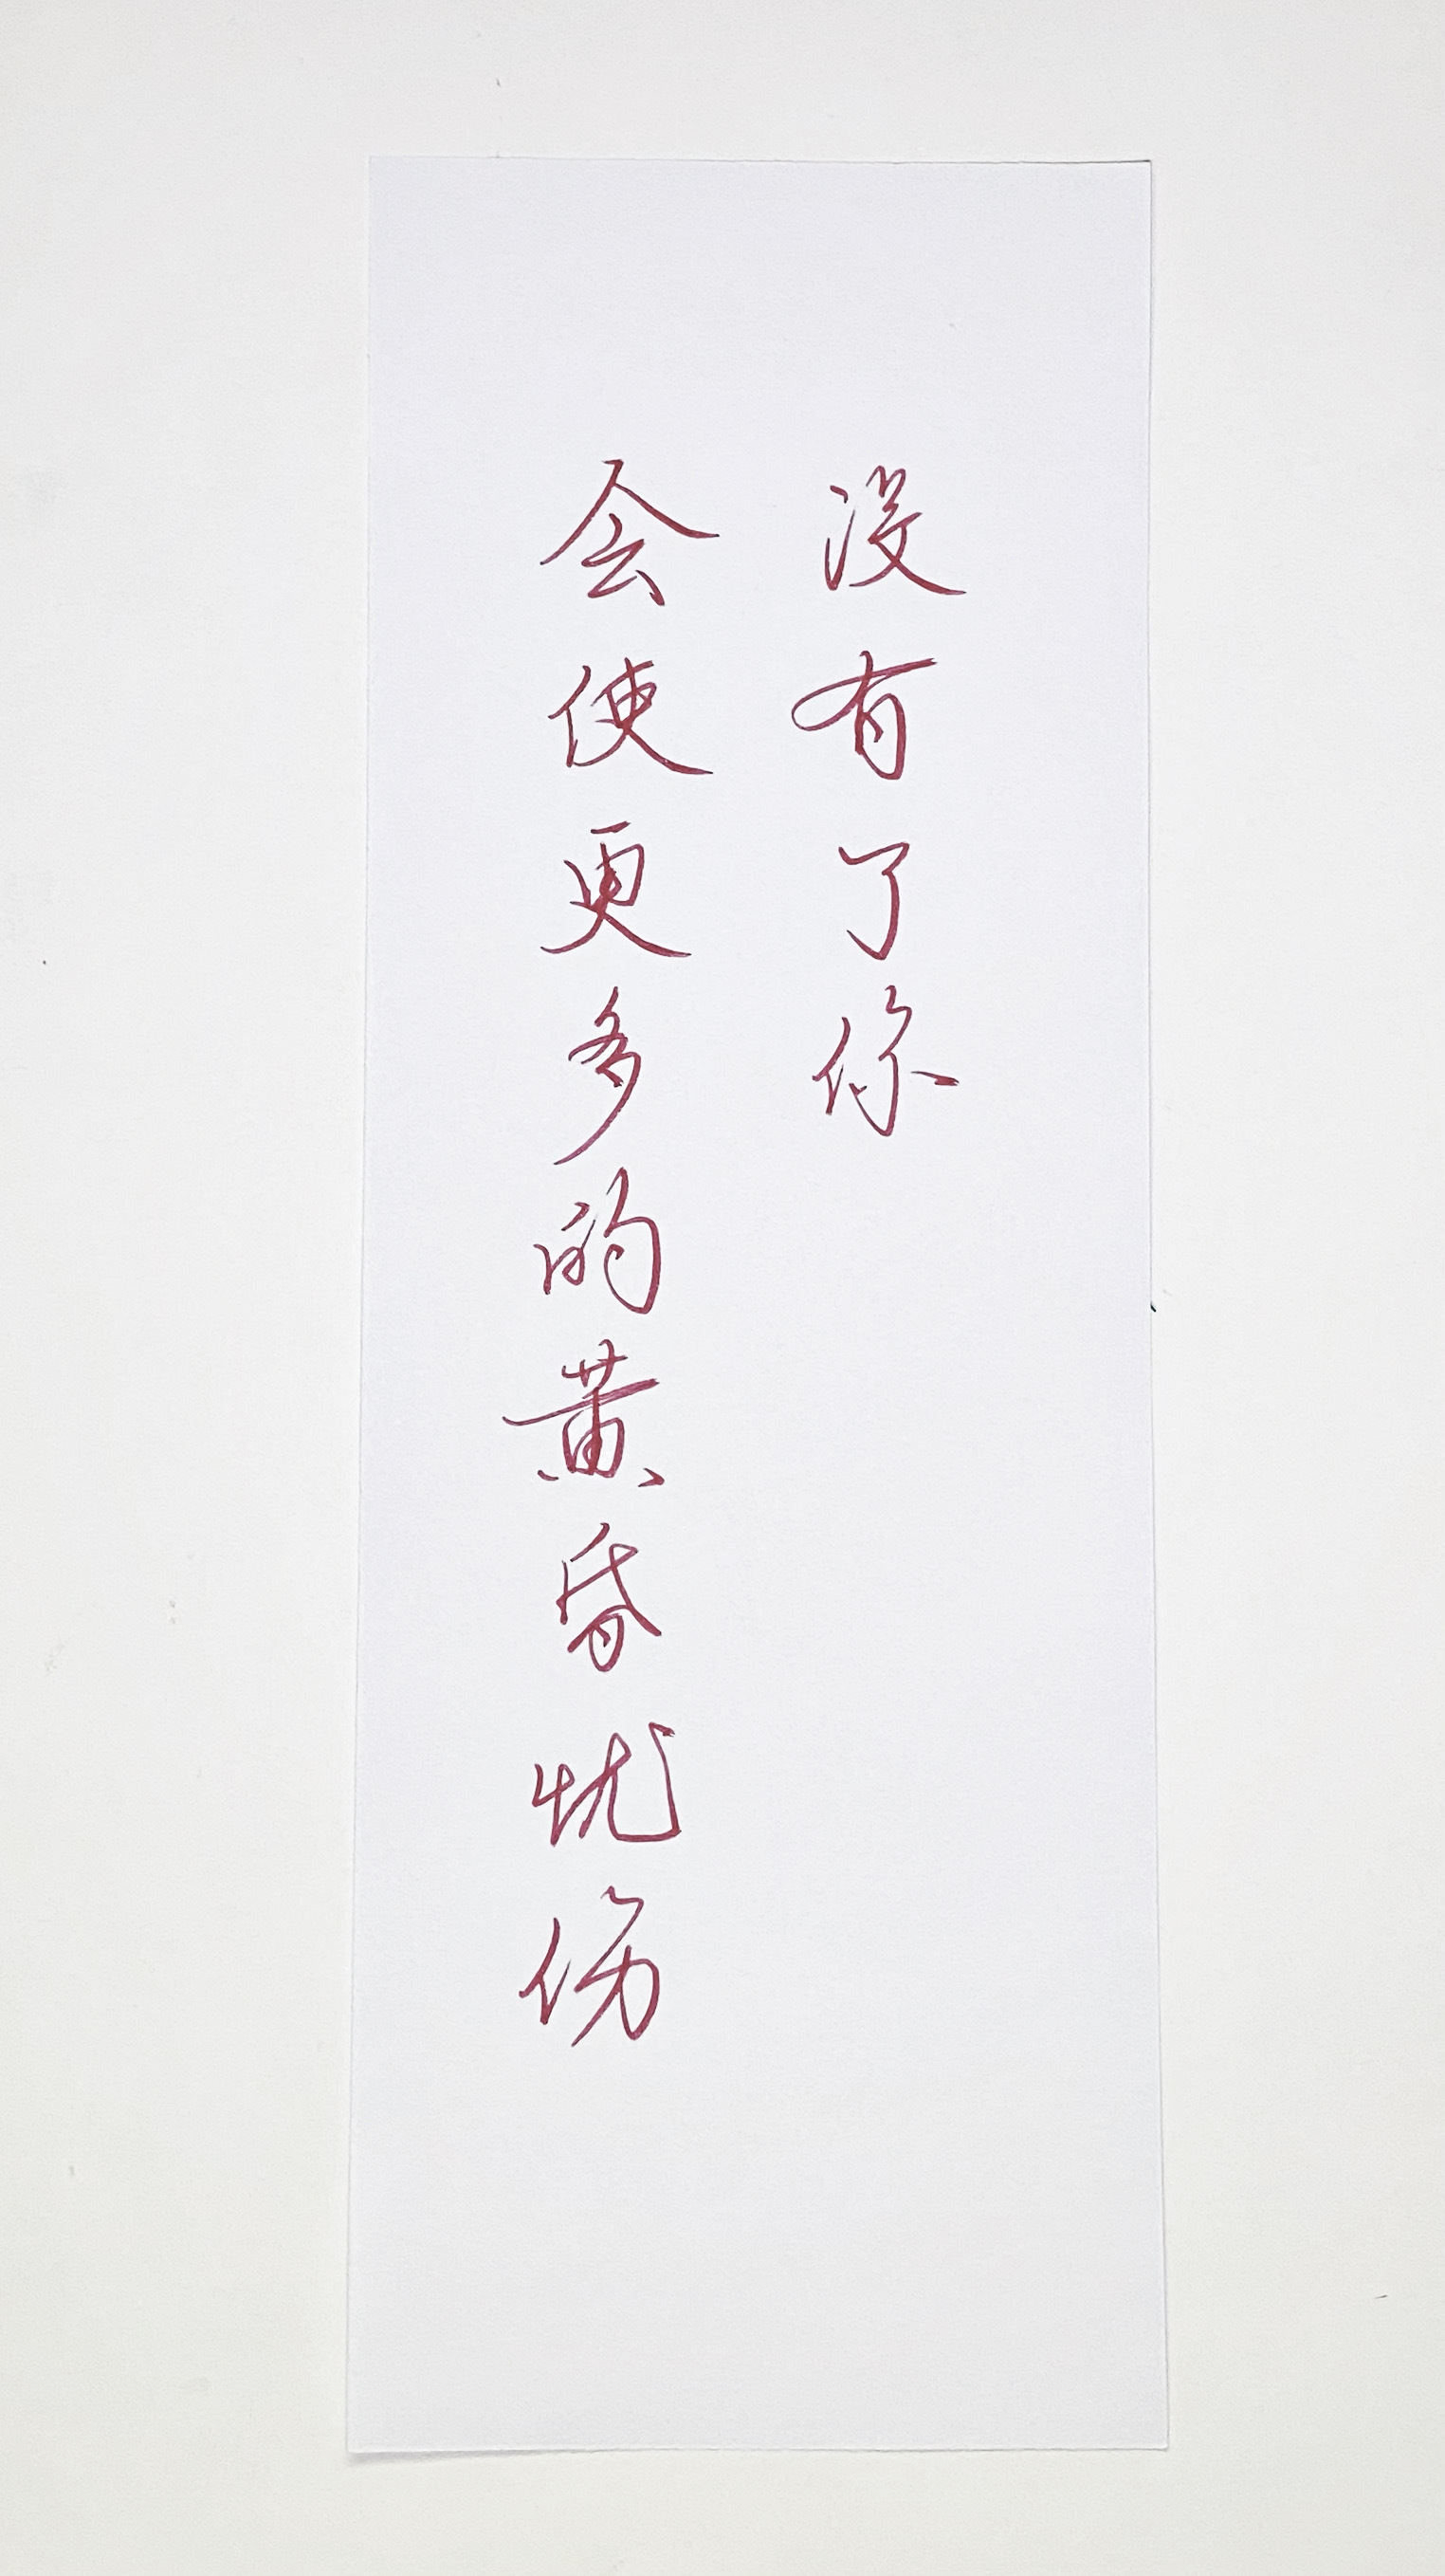 没有了你
会使更多的黄昏忧伤